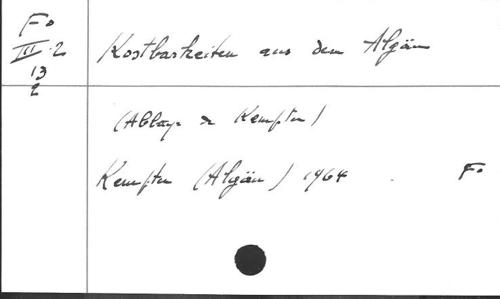 Fo
III.2
13
2
Kostbarkeiten aus dem Algäu
(Abbaye de Kempten)
Kempten (Algäu) 1964 . Fo